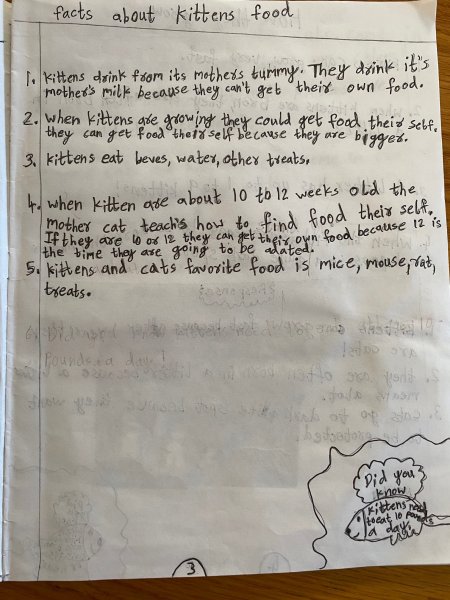 facts about kittens food
1. kittens drink from its mothers tummy. They drink it's
mother's milk because they can't get their own food.
2. when kittens are growing they could get food their self.
they can get food their self because they are bigger.
3. kittens eat beves, water, other treats.
4. when kitten are about 10 to 12 weeks old the
mother cat teach's how to find food their self.
If they are 10 or 12 they can get their own food because 12 is
the time they are going to be adated.
5. kittens and cats favorite food is mice, mouse, rat,
treats.
Did you
know
kittens need
to eat 10 pounds
a day.
3